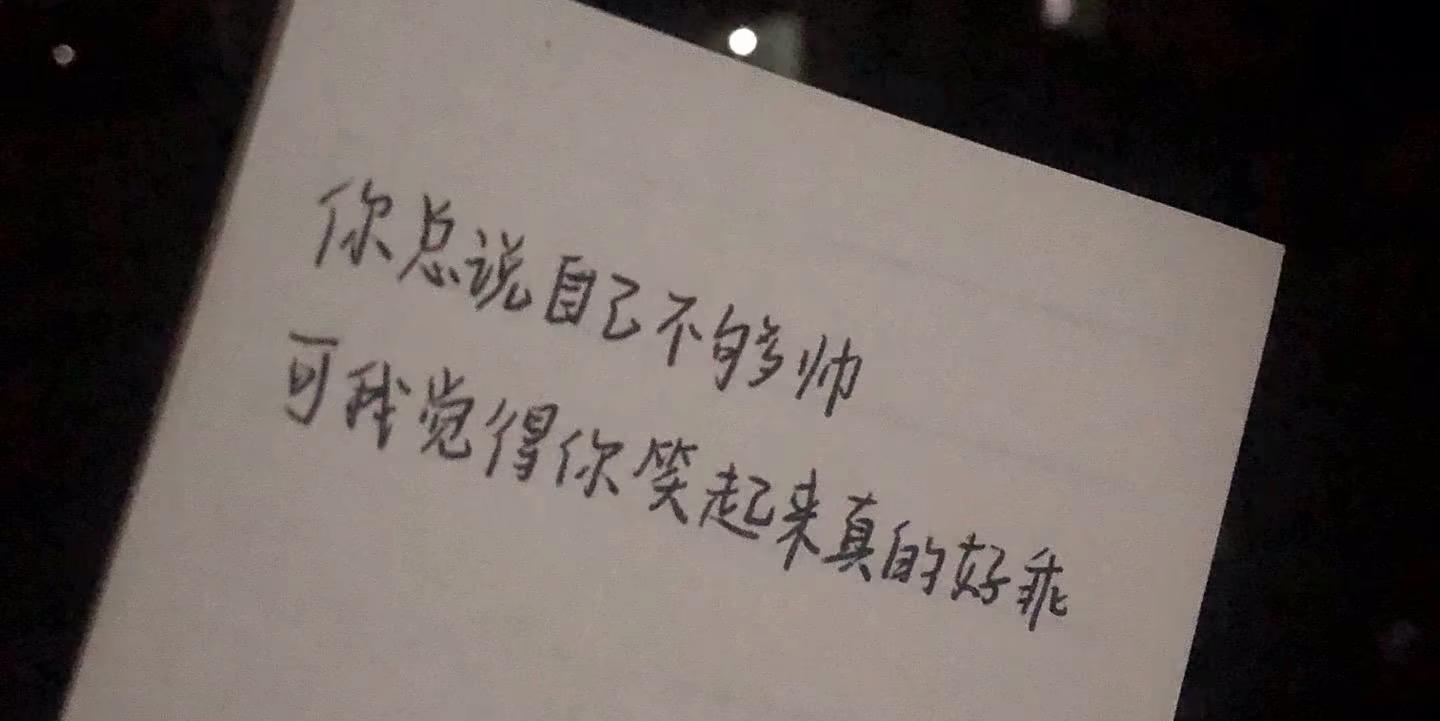 你总说自己不够帅
可我觉得你笑起来真的好乖